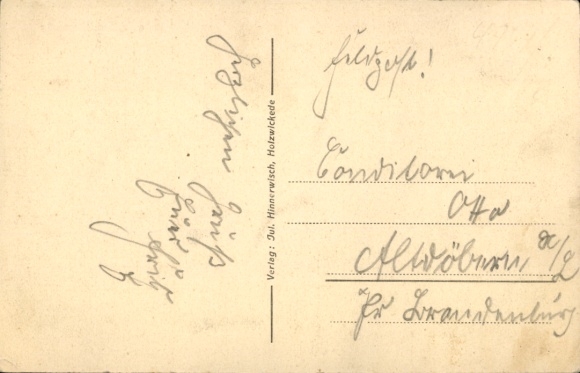 Herzlichen
Gruß
Bruder
Fritz
Verlag: Jul. Hinnerwisch, Holzwickede
Feldpost!
Conditorei
Otto
Altdöbern N/L
Pr Brandenburg